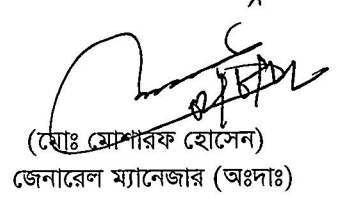 (মোঃ মোশারফ হোসেন)
জেনারেল ম্যানেজার (অঃদাঃ)